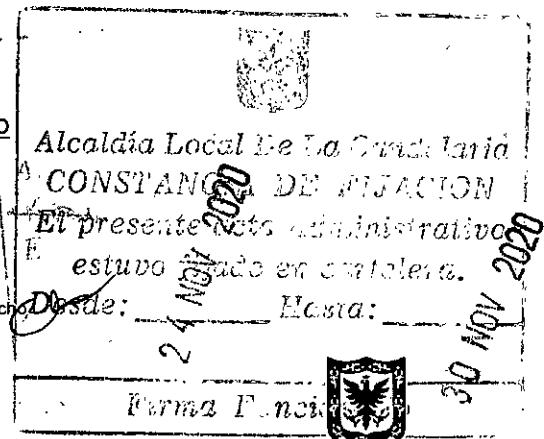 Alcaldía Local De La Candelaria
CONSTANCIA DE FIJACION
El presente Acto Administrativo
estuvo fijado en cartelera.
Desde: 24 NOV 2020 Hasta: 30 NOV 2020
Firma Funcionario